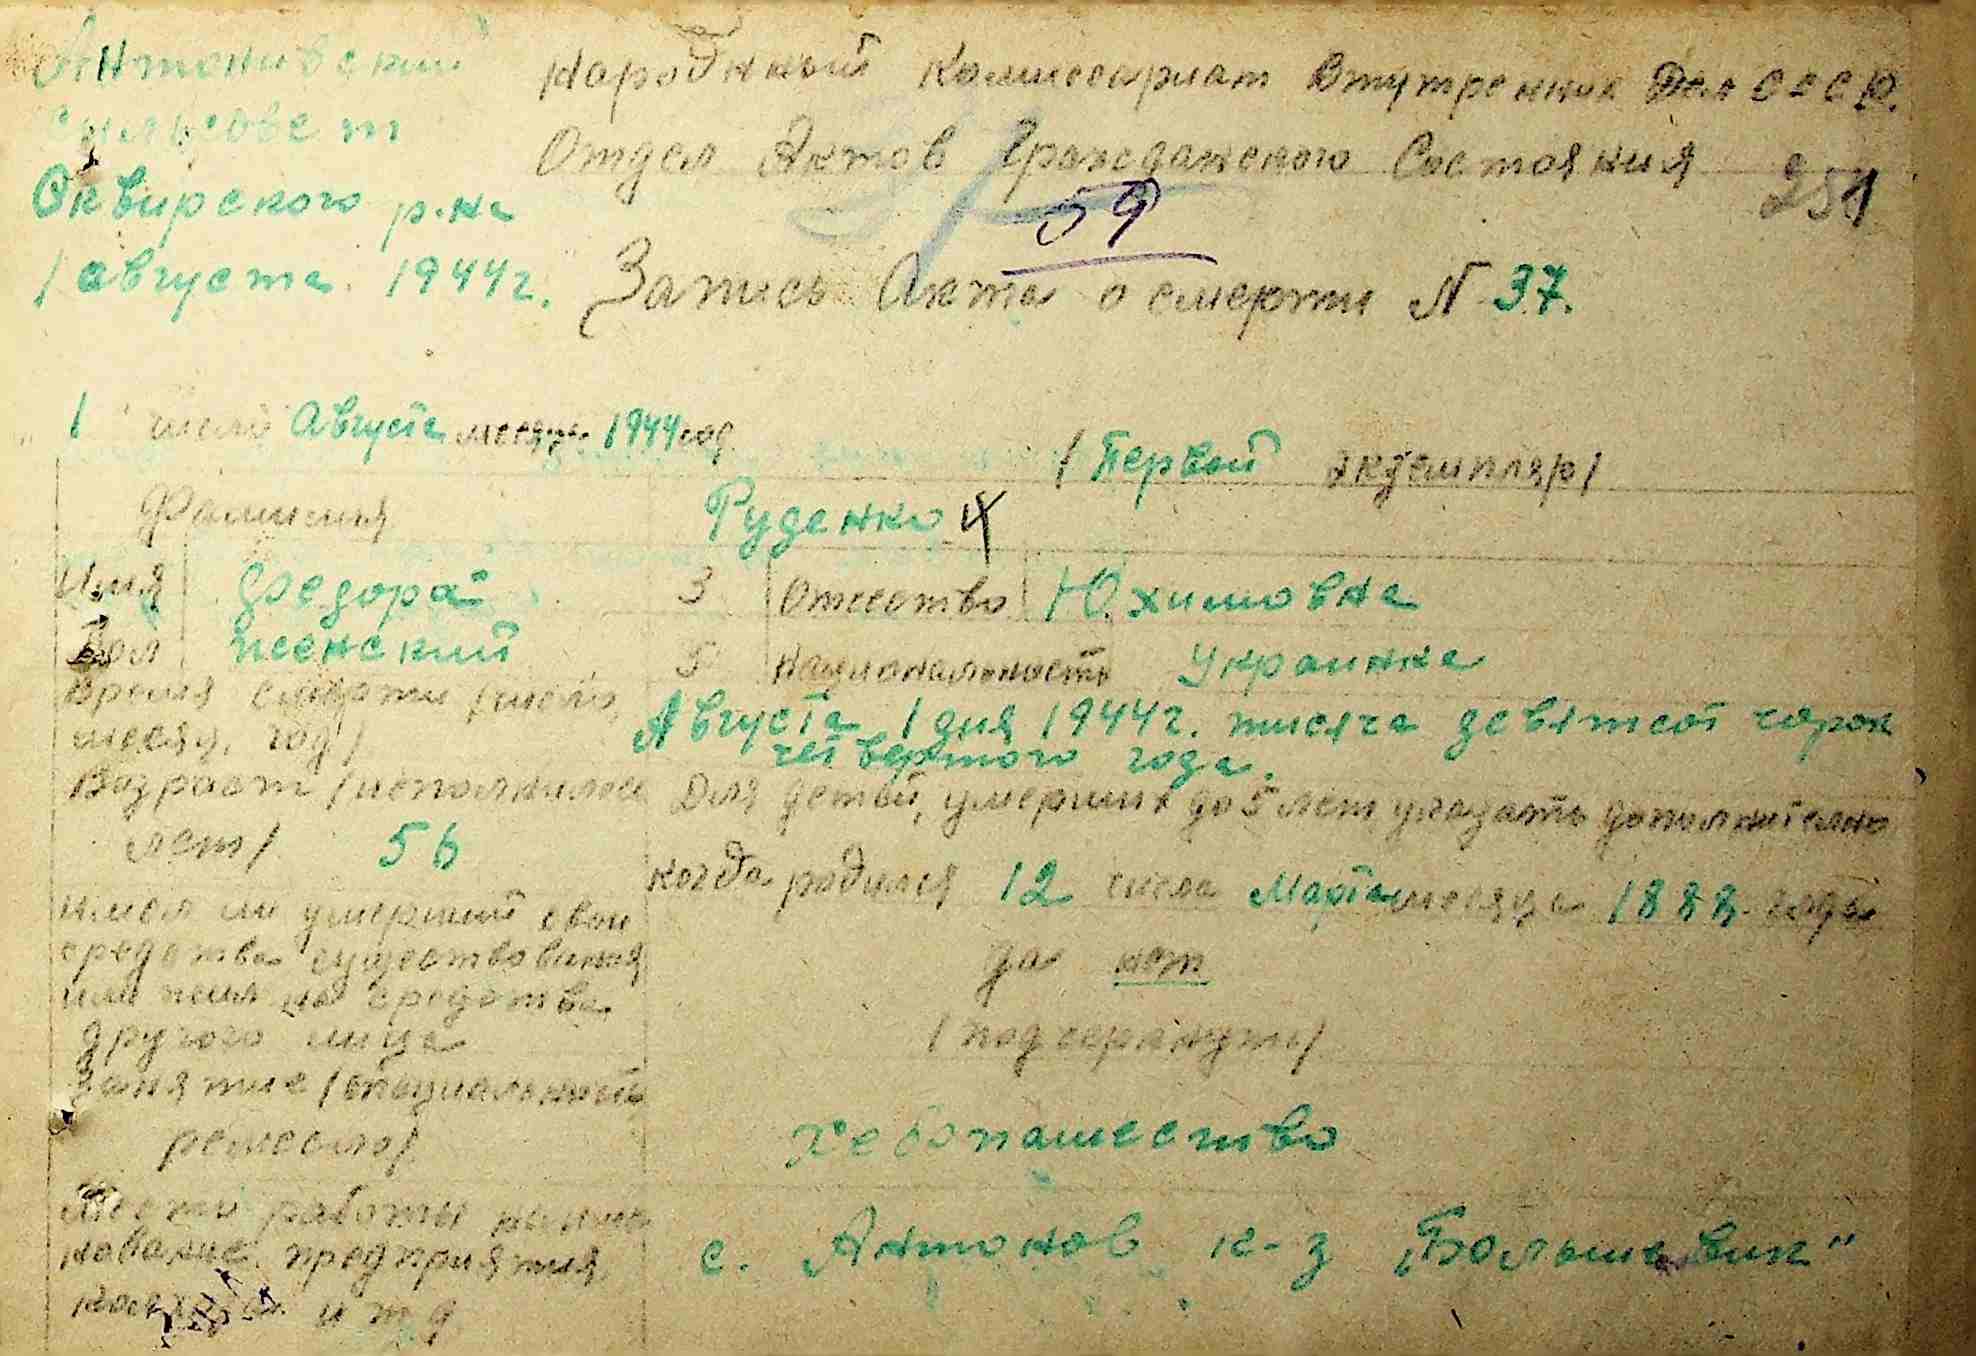 Антоновский
сильсовет
Сквирского р-на
1 августа 1944г.
Народнный Комиссариат Внутренних Дел СССР.
Отдел Актов Гражданского Состояния
251
59
Запись Акта о смерти N 37.
1 число Августа месяца 1944 год
/Первый экземпляр/
Фамилия Руденко
Имя Федора 3 Отчество Юхимовна
Пол женский 5 Национальность Украинка
Время смерти /число, месяц, год/
Августа 1 дня 1944г. тисяча девятсот сорок
четвертого года.
Возраст /исполнилось
лет/ 56
Для детей, умерших до 5 лет указать дополнительно
когда родился 12 числа Марта месяца 1888 года
Имел ли умерший свои
средства существования
или жил на средства
другого лица
да нет
/подчеркнуть/
Занятие /специальность
ремесло/
Хебопашество
Место работы наиме
нование предприятия,
колхоза и т д
с. Антонов к-з „Большевик"